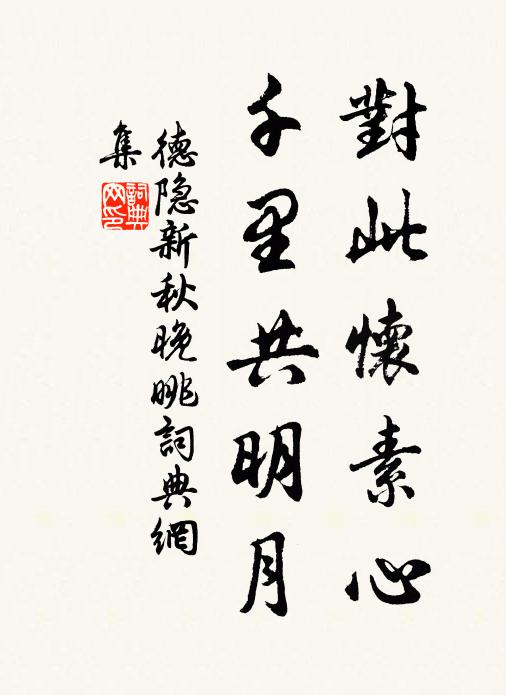 對此懷素心
千里共明月
德隐新秋晚眺詞典網
集
詞典
网印